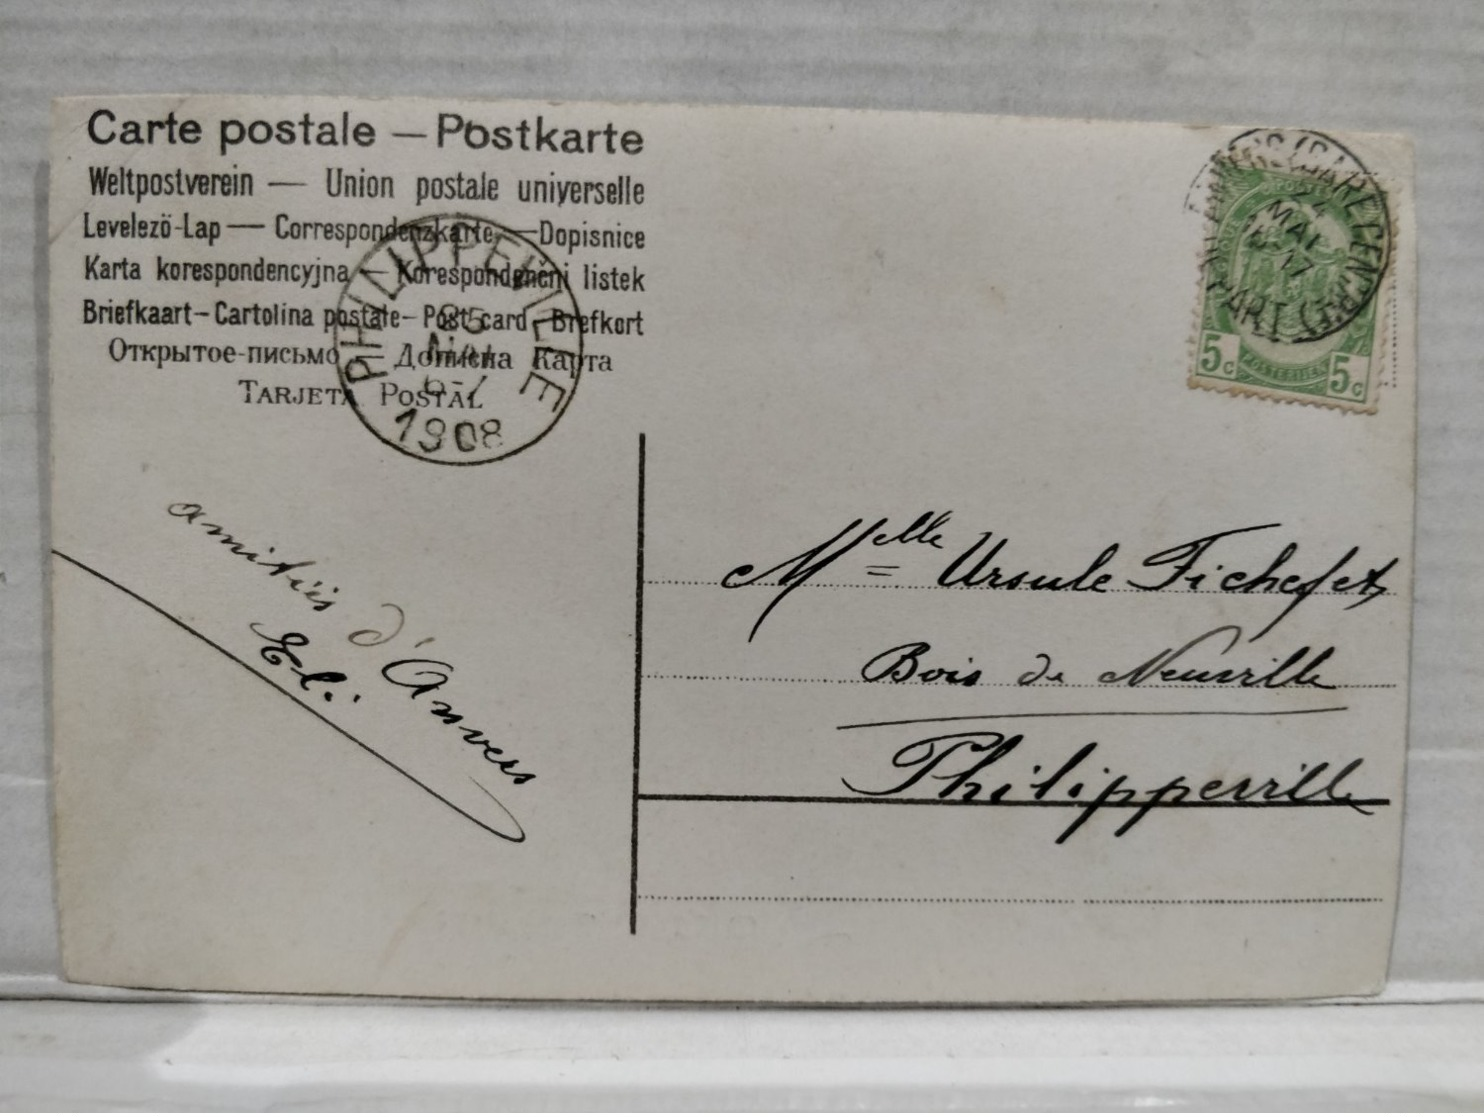 Carte postale — Postkarte
Weltpostverein — Union postale universelle
Levelezö-Lap — Correspondenzkarte — Dopisnice
Karta korespondencyjna — Korespondenčni listek
Briefkaart — Cartolina postale — Post card — Brefkort
Открытое-письмо — Дописна Карта
TARJETA POSTAL
PHILIPPEVILLE
25
MAI
6-7
1908
(GARE CENTRALE)
MAI
17
DÉPART
POSTERIJEN
5c 5c
amitiés d'Anvers
El.
Melle Ursule Fichefet
Bois de Neuville
Philippeville